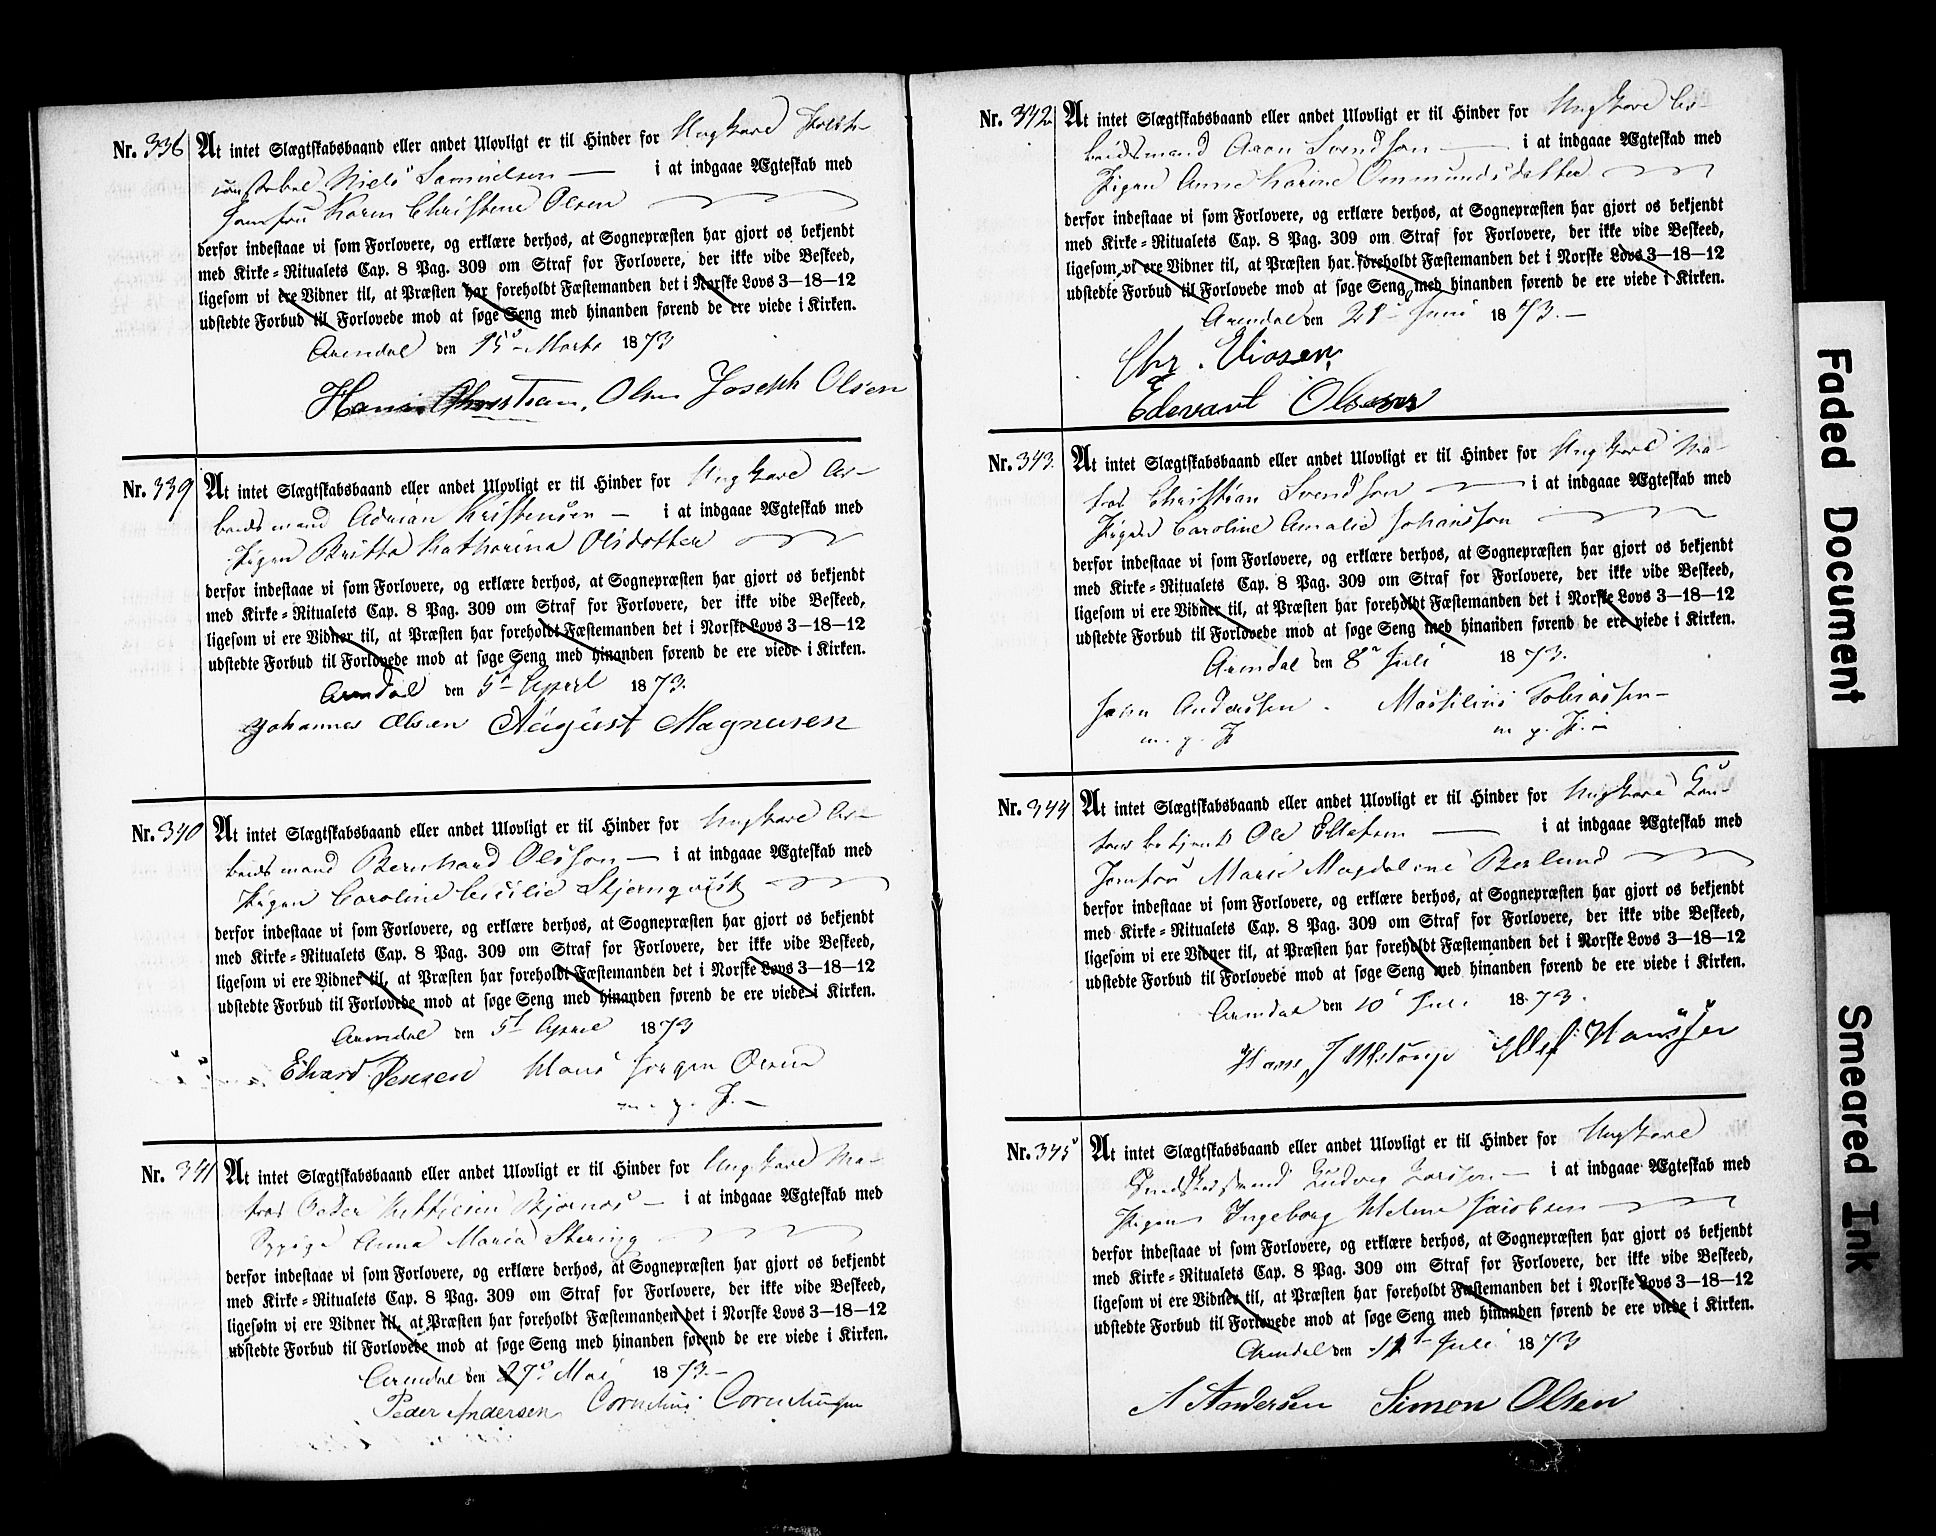 Nr. 338 At intet Slægtskabsbaand eller andet Ulovligt er til Hinder for Ungkarl
Niels Samuelsen — i at indgaae Ægteskab med
Jomfru Karen Christine Olsen
derfor indestaae vi som Forlovere, og erklære derhos, at Sognepræsten har gjort os bekjendt
med Kirke-Ritualets Cap. 8 Pag. 309 om Straf for Forlovere, der ikke vide Beskeed,
ligesom vi ere Vidner til, at Præsten har foreholdt Fæstemanden det i Norske Lovs 3—18—12
udstedte Forbud til Forlovede mod at søge Seng med hinanden førend de ere viede i Kirken.
Arendal den 15de Marts 1873
Hans Christian Olsen Joseph Olsen
Nr. 339 At intet Slægtskabsbaand eller andet Ulovligt er til Hinder for Ungkarl Ar-
beidsmand Adrian Kristensen — i at indgaae Ægteskab med
Pigen Britta Katharina Olsdotter
derfor indestaae vi som Forlovere, og erklære derhos, at Sognepræsten har gjort os bekjendt
med Kirke-Ritualets Cap. 8 Pag. 309 om Straf for Forlovere, der ikke vide Beskeed,
ligesom vi ere Vidner til, at Præsten har foreholdt Fæstemanden det i Norske Lovs 3—18—12
udstedte Forbud til Forlovede mod at søge Seng med hinanden førend de ere viede i Kirken.
Arendal den 5t April 1873.
Johannes Olsen August Magnusen
Nr. 340 At intet Slægtskabsbaand eller andet Ulovligt er til Hinder for Ungkarl Ar-
beidsmand Bernhard Olsson — i at indgaae Ægteskab med
Pigen Caroline Cecilie Stjernqvist
derfor indestaae vi som Forlovere, og erklære derhos, at Sognepræsten har gjort os bekjendt
med Kirke-Ritualets Cap. 8 Pag. 309 om Straf for Forlovere, der ikke vide Beskeed,
ligesom vi ere Vidner til, at Præsten har foreholdt Fæstemanden det i Norske Lovs 3—18—12
udstedte Forbud til Forlovede mod at søge Seng med hinanden førend de ere viede i Kirken.
Arendal den 5t April 1873
Edvard Jensen Hans Jørgen Olsen
m. p. P.
Nr. 341 At intet Slægtskabsbaand eller andet Ulovligt er til Hinder for Ungkarl Ma-
tros Peder Bjornos — i at indgaae Ægteskab med
Anna Maria
derfor indestaae vi som Forlovere, og erklære derhos, at Sognepræsten har gjort os bekjendt
med Kirke-Ritualets Cap. 8 Pag. 309 om Straf for Forlovere, der ikke vide Beskeed,
ligesom vi ere Vidner til, at Præsten har foreholdt Fæstemanden det i Norske Lovs 3—18—12
udstedte Forbud til Forlovede mod at søge Seng med hinanden førend de ere viede i Kirken.
Arendal den 27de Mai 1873.—
Peder Andersen Cornelius Corneliusen
Nr. 342 At intet Slægtskabsbaand eller andet Ulovligt er til Hinder for Ungkarl Ar-
beidsmand Aron Svendson — i at indgaae Ægteskab med
Pigen Anne Karine Ommundsdatter
derfor indestaae vi som Forlovere, og erklære derhos, at Sognepræsten har gjort os bekjendt
med Kirke-Ritualets Cap. 8 Pag. 309 om Straf for Forlovere, der ikke vide Beskeed,
ligesom vi ere Vidner til, at Præsten har foreholdt Fæstemanden det i Norske Lovs 3—18—12
udstedte Forbud til Forlovede mod at søge Seng med hinanden førend de ere viede i Kirken.
Arendal den 21 Juni 1873.—
Chr.
Edevart Olsen
Nr. 343. At intet Slægtskabsbaand eller andet Ulovligt er til Hinder for Ungkarl Ma-
tros Christian Svendson — i at indgaae Ægteskab med
Pigen Caroline Amalie Johansson
derfor indestaae vi som Forlovere, og erklære derhos, at Sognepræsten har gjort os bekjendt
med Kirke-Ritualets Cap. 8 Pag. 309 om Straf for Forlovere, der ikke vide Beskeed,
ligesom vi ere Vidner til, at Præsten har foreholdt Fæstemanden det i Norske Lovs 3—18—12
udstedte Forbud til Forlovede mod at søge Seng med hinanden førend de ere viede i Kirken.
Arendal den 8de Juli 1873.
John Anderssen. Tobiassen
m. p. P. m. p. P.
Nr. 344 At intet Slægtskabsbaand eller andet Ulovligt er til Hinder for Ungkarl
Ole Ellefsen — i at indgaae Ægteskab med
Jomfru Marie Magdalene Berlund
derfor indestaae vi som Forlovere, og erklære derhos, at Sognepræsten har gjort os bekjendt
med Kirke-Ritualets Cap. 8 Pag. 309 om Straf for Forlovere, der ikke vide Beskeed,
ligesom vi ere Vidner til, at Præsten har foreholdt Fæstemanden det i Norske Lovs 3—18—12
udstedte Forbud til Forlovede mod at søge Seng med hinanden førend de ere viede i Kirken.
Arendal den 10de Juli 1873.
Hans Ellef Hanssen
Nr. 345 At intet Slægtskabsbaand eller andet Ulovligt er til Hinder for Ungkarl
Ludvig Larsson — i at indgaae Ægteskab med
Pigen Ingeborg Helene Jacobsen
derfor indestaae vi som Forlovere, og erklære derhos, at Sognepræsten har gjort os bekjendt
med Kirke-Ritualets Cap. 8 Pag. 309 om Straf for Forlovere, der ikke vide Beskeed,
ligesom vi ere Vidner til, at Præsten har foreholdt Fæstemanden det i Norske Lovs 3—18—12
udstedte Forbud til Forlovede mod at søge Seng med hinanden førend de ere viede i Kirken.
Arendal den 11t Juli 1873
A Andersen Simon Olsen
Faded Document
Smeared Ink